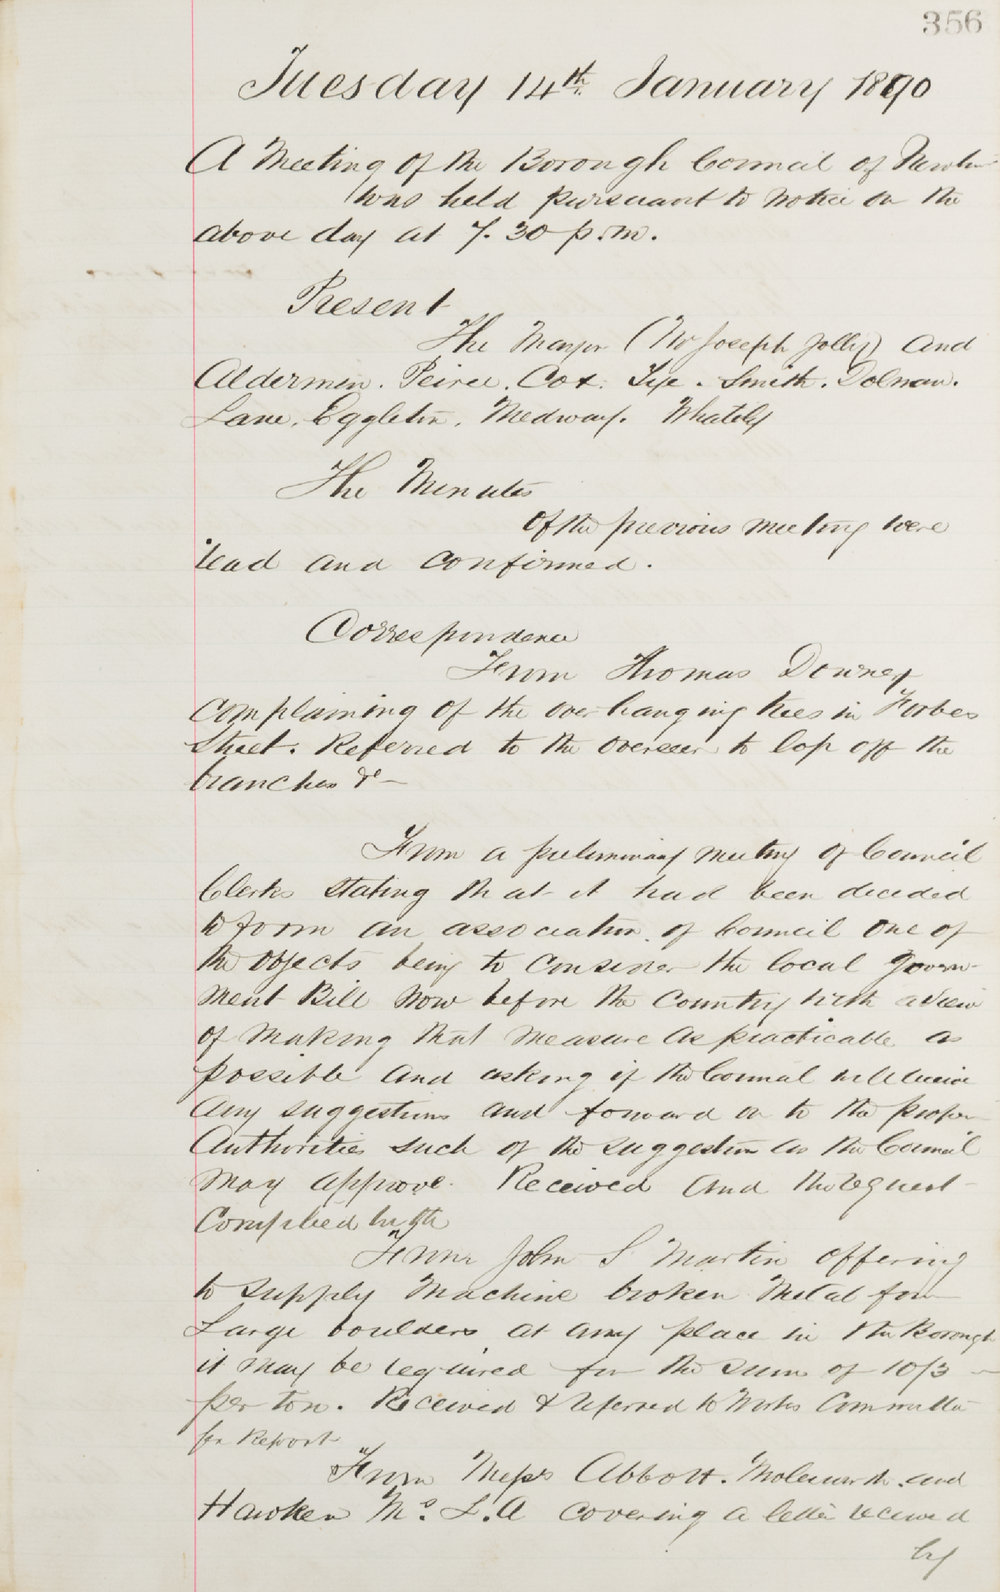 356
Tuesday 14th January 1890
A Meeting of the Borough Council of Newtown
was held pursuant to notice on the
above day at 7.30 p.m.
Present
The Mayor (Mr Joseph Jolly) and
Aldermen. Peirce. Cox. Tye. Smith. Dolman.
Lane. Eggleton. Medway. Whately
The Minutes
of the previous meeting were
read and confirmed.
Correspondence
From Thomas Downey
complaining of the overhanging trees in Forbes
Street. Referred to the Overseer to lop off the
branches &c —
From a preliminary meeting of Council
Clerks stating that it had been decided
to form an association of Council one of
the objects being to consider the local Govern-
ment Bill now before the Country with a view
of making that measure as practicable as
possible and asking if the Council will receive
any suggestions and forward on to the proper
Authorities such of the suggestions as the Council
may approve. Received and the request
Complied with
From John S Martin offering
to supply Machine broken Metal from
Large boulders at any place in the Borough
it may be required for the sum of 10/3 —
per ton. Received & referred to Works Committee
for Report
From Messrs Abbott. Molesworth and
Hawken Ms. L.A covering a letter received
by